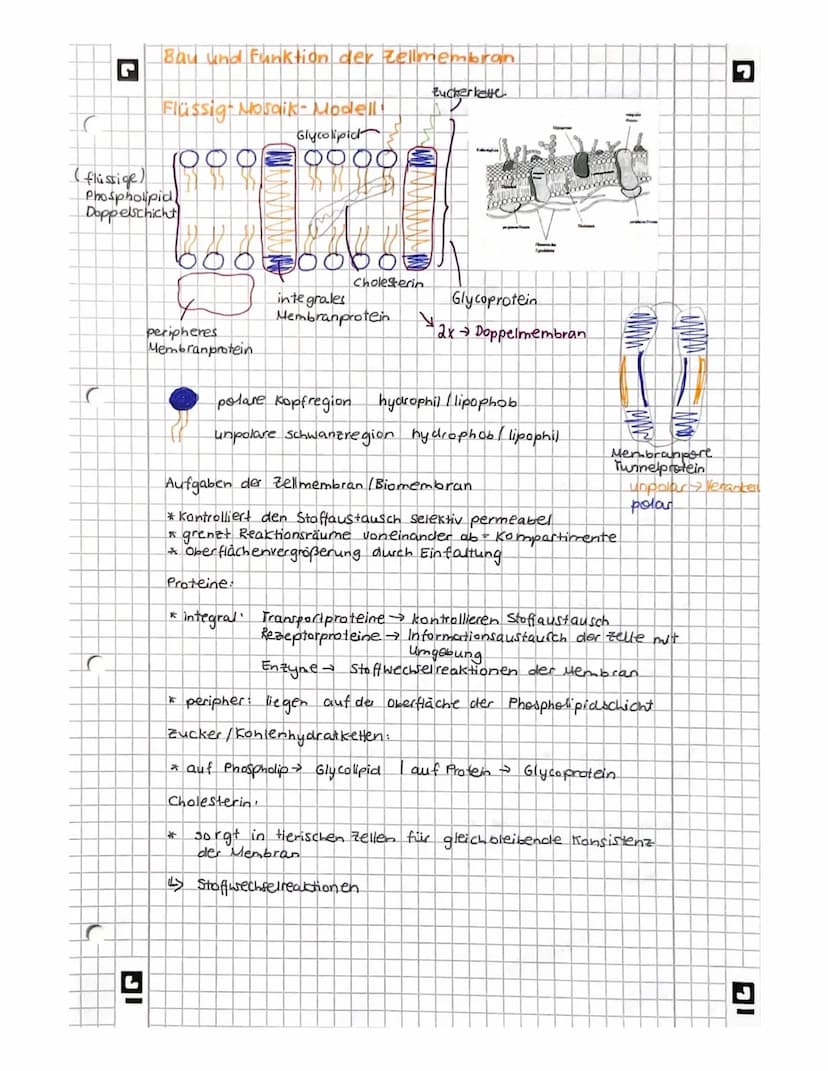 Bau und Funktion der Zellmembran
Flüssig-Mosaik-Modell:
Zuckerkette
Glycolipid
(flüssige)
Phospholipid
Doppelschicht
Cholesterin
integrales
Membranprotein
Glycoprotein
2x → Doppelmembran
peripheres
Membranprotein
polare Kopfregion hydrophil / lipophob
unpolare Schwanzregion hydrophob / lipophil
Membranpore
Tunnelprotein
unpolar →
polar
Aufgaben der Zellmembran / Biomembran
* Kontrolliert den Stoffaustausch selektiv permeabel
* grenzt Reaktionsräume voneinander ab = Kompartimente
* Oberflächenvergrößerung durch Einfaltung
Proteine:
* integral: Transportproteine → kontrollieren Stoffaustausch
Rezeptorproteine → Informationsaustausch der Zelle mit
Umgebung
Enzyme → Stoffwechselreaktionen der Membran
* peripher: liegen auf der Oberfläche der Phospholipidschicht
Zucker / Kohlenhydratketten:
* auf Phospholip → Glycolipid | auf Protein → Glycoprotein
Cholesterin:
* sorgt in tierischen Zellen für gleichbleibende Konsistenz
der Membran
↳ Stoffwechselreaktionen